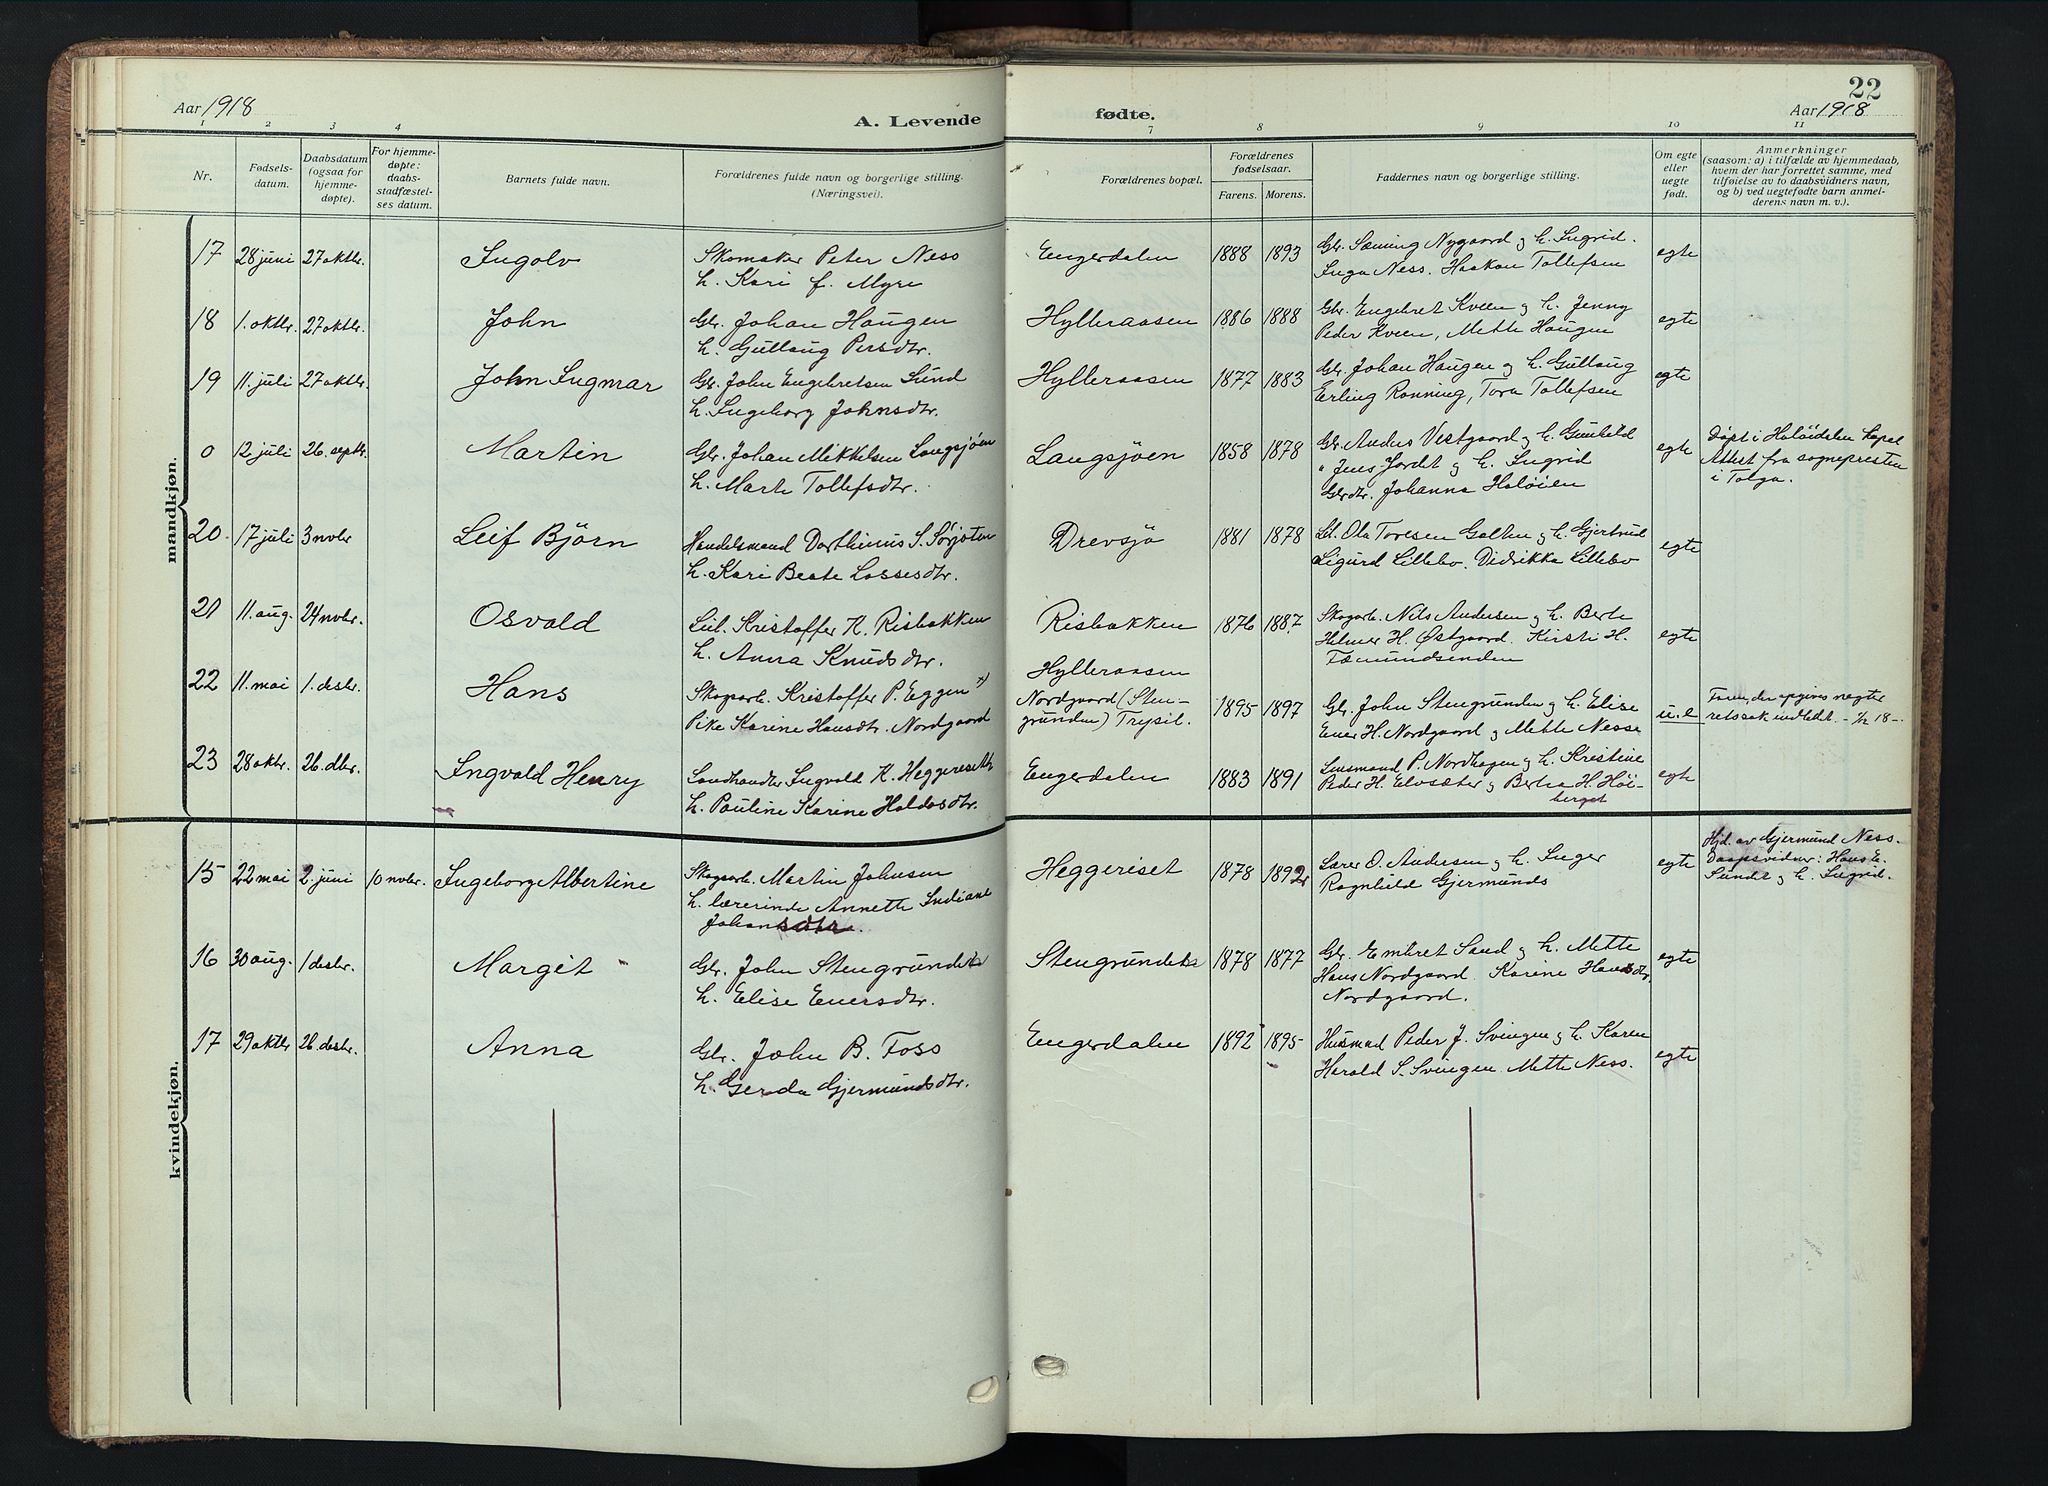 Aar 1918
A. Levende
1 2 3 4
Nr.
Fødsels-
datum.
Daabsdatum
(ogsaa for
hjemme-
døpte).
For hjemme-
døpte:
daabs-
stadfæstel-
ses datum.
Barnets fulde navn.
Forældrenes fulde navn og borgerlige stilling.
(Næringsvei).
mandkjøn.
17 28 juni 27 oktbr. Ingolv Skomaker Peter Ness
h. Kari f. Myre
18 1. oktbr. 27 oktbr. John Gbr. Johan Haugen
h. Gullaug Persdtr.
19 11. juli 27 oktbr. John Ingmar Gbr. John Engebretsen Sund
h. Ingeborg Johnsdtr.
0 12 juli 26. septbr. Martin Gbr. Johan Mikkelsen Langsjøen
h. Marte Tollefsdtr.
20. 17 juli 3 novbr Leif Björn Handelsmand Dorthinus S. Sørjoten
h. Kari Beate Lassesdtr.
21 11. aug. 24 novbr. Osvald Kristoffer K. Risbakken
h. Anna Knudsdtr.
22 11. mai 1. desbr. Hans Skogsarb. Kristoffer P. Eggen x)
Pike Karine Hansdtr. Nordgaard
23 28 oktbr. 26. dbr. Ingvald Henry Landhandler Ingvald K. Heggeriset
h. Pauline Karine Haldosdtr.
kvindekjøn.
15 22 mai 2. juni 10 novbr. Ingeborg Albertine Skogsarb. Martin Johnsen
h. lærerinde Annette Indiane
Johansdtr.
16 30 aug. 1 desbr. Margit Gbr. John Stengrundet
h. Elise Enersdtr.
17 29 oktbr 26. desbr. Anna Gbr. John B. Foss
h. Gerda Gjermundsdtr.
22
fødte.
Aar 1918
7 8 9 10 11
Forældrenes bopæl.
Forældrenes
fødselsaar.
Farens. Morens.
Faddernes navn og borgerlige stilling.
Om egte
eller
uegte
født.
Anmerkninger
(saasom: a) i tilfælde av hjemmedaab,
hvem der har forrettet samme, med
tilføielse av to daabsvidners navn,
og b) ved uegtefødte barn anmel-
derens navn m. v.).
Engerdalen 1888 1893 Gbr. Sæming Nygaard og h. Ingrid. egte
Inga Ness. Haakon Tollefsen
Hylleraasen 1886 1888 Gbr. Engebret Kveen og h. Jenny egte
Peder Kveen, Mette Haugen
Hylleraasen 1877 1883 Gbr. Johan Haugen og h. Gullaug egte
Erling Rønning, Tora Tollefsen
Langsjöen 1858 1878 Gbr. Anders Vestgaard og h. Gunhild egte Døpt i Holöidalen kapel
" Jens Jordet og h. Ingrid Attest fra sognepresten
Gbrdtr. Johanna Holøien i Tolga.
Drevsjö 1881 1878 Ola Toresen Galten og h. Gjertrud egte
Sigurd Lillebo. Didrikke Lillebo
Risbakken 1876 1887 Skogarb. Nils Andersen og h. Berte egte
Helmer H. Østgaard. Kirsti H.
Fæmundsenden
Hylleraasen
Nordgaard (Sten-
grunden) Trysil. 1895 1897 Gbr. John Stengrunden og h. Elise u.e Faren, der opgives negter
Ener H. Nordgaard og Mette Nesse retssak indledt.
Engerdalen 1883 1891 Lensmand P. Nordhagen og h. Kristine egte
Peder H. Elvsæter og Berta H. Höi-
berget
Heggeriset 1878 1892 Lærer O. Andersen og h. Inger egte Hjd. av Gjermund Ness.
Ragnhild Gjermunds Daapsvidner: Hans E.
Sundet og h. Ingrid.
Stengrundet 1878 1877 Gbr. Embret Sand og h. Mette egte
Hans Nordgaard. Karine Hansdtr.
Nordgaard.
Engerdalen 1892 1895 Husmand Peder J. Svingen og h. Karen egte
Harald S. Svingen. Mette Ness.